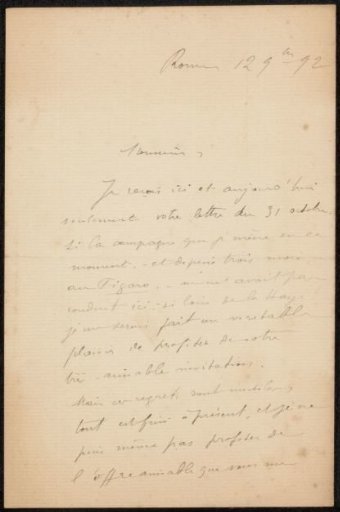 Rome 12 9bre 92
Monsieur,
Je reçois ici et aujourd'hui
seulement votre lettre du 31 octobre.
Si la campagne que je mène en ce
moment - et depuis trois mois -
au Figaro, - ne m'avait pas
conduit ici - si loin de la Haye
je me serais fait un véritable
plaisir de profiter de votre
très aimable invitation.
Mais ces regrets sont inutiles,
tout est fini à présent, et je ne
puis même pas profiter de
l'offre aimable que vous me